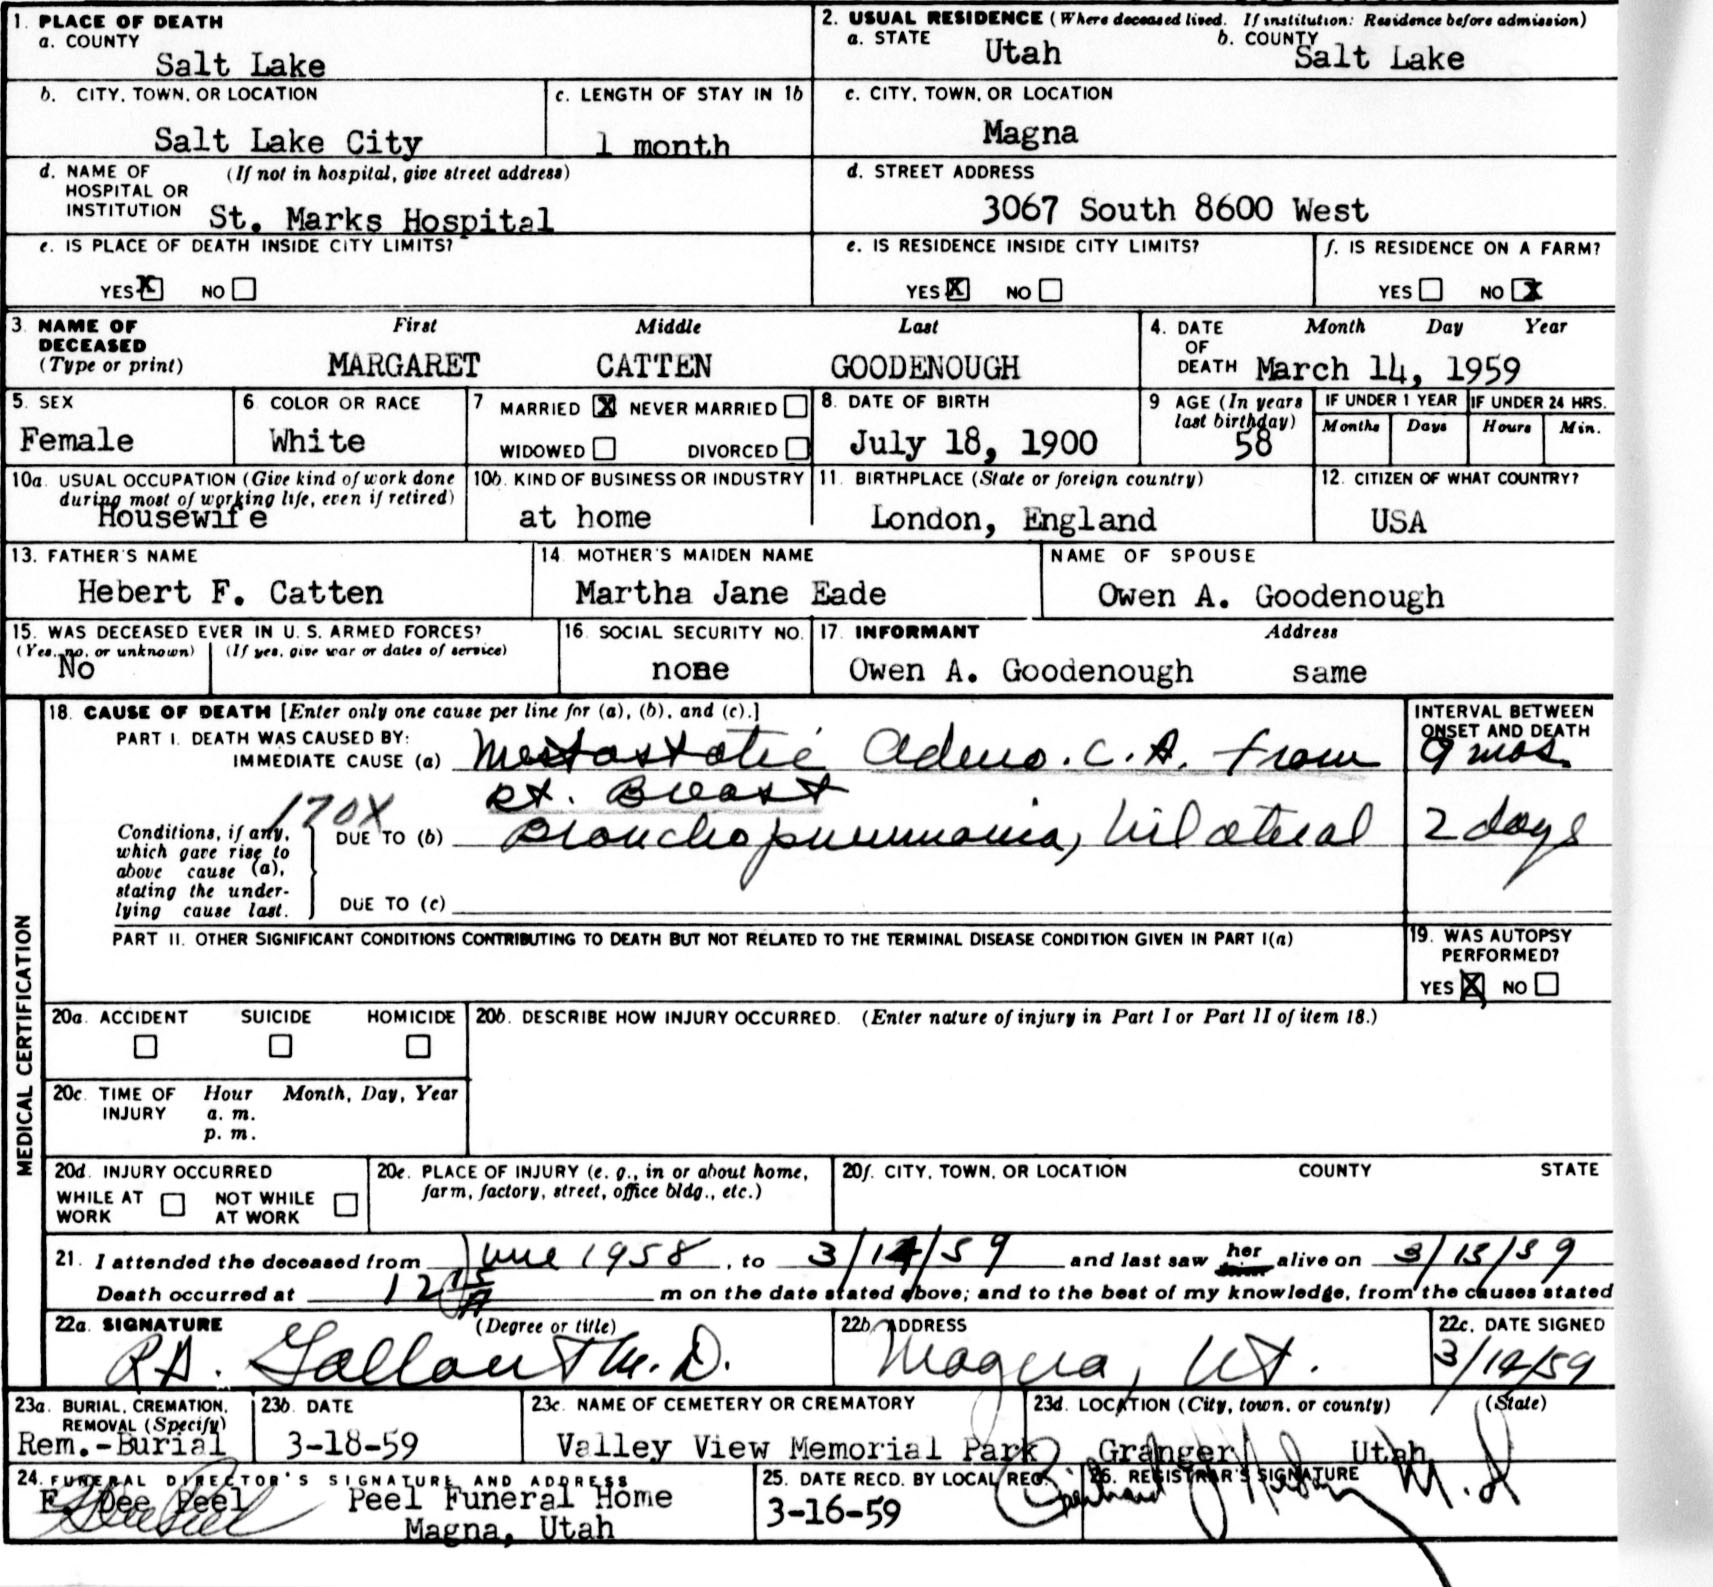 1. PLACE OF DEATH
a. COUNTY
Salt Lake
2. USUAL RESIDENCE (Where deceased lived. If institution: Residence before admission)
a. STATE Utah b. COUNTY Salt Lake
b. CITY, TOWN, OR LOCATION
Salt Lake City
c. LENGTH OF STAY IN 1b
1 month
c. CITY, TOWN, OR LOCATION
Magna
d. NAME OF HOSPITAL OR INSTITUTION (If not in hospital, give street address)
St. Marks Hospital
d. STREET ADDRESS
3067 South 8600 West
e. IS PLACE OF DEATH INSIDE CITY LIMITS?
YES X NO
e. IS RESIDENCE INSIDE CITY LIMITS?
YES X NO
f. IS RESIDENCE ON A FARM?
YES NO X
3. NAME OF DECEASED (Type or print)
First Middle Last
MARGARET CATTEN GOODENOUGH
4. DATE OF DEATH Month Day Year
March 14, 1959
5. SEX
Female
6. COLOR OR RACE
White
7 MARRIED X NEVER MARRIED
WIDOWED DIVORCED
8. DATE OF BIRTH
July 18, 1900
9 AGE (In years last birthday)
58
IF UNDER 1 YEAR
Months Days
IF UNDER 24 HRS.
Hours Min.
10a. USUAL OCCUPATION (Give kind of work done during most of working life, even if retired)
Housewife
10b. KIND OF BUSINESS OR INDUSTRY
at home
11. BIRTHPLACE (State or foreign country)
London, England
12. CITIZEN OF WHAT COUNTRY?
USA
13. FATHER'S NAME
Hebert F. Catten
14. MOTHER'S MAIDEN NAME
Martha Jane Eade
NAME OF SPOUSE
Owen A. Goodenough
15. WAS DECEASED EVER IN U. S. ARMED FORCES?
(Yes, no, or unknown) (If yes, give war or dates of service)
No
16. SOCIAL SECURITY NO.
none
17. INFORMANT Address
Owen A. Goodenough same
MEDICAL CERTIFICATION
18. CAUSE OF DEATH [Enter only one cause per line for (a), (b), and (c).]
INTERVAL BETWEEN ONSET AND DEATH
PART I. DEATH WAS CAUSED BY:
IMMEDIATE CAUSE (a) Metastatic Adeno. C.A. from 9 mos.
Rt. Breast
170X
Conditions, if any, which gave rise to above cause (a), stating the underlying cause last.
DUE TO (b) Bronchopneumonia, bilateral 2 days
DUE TO (c)
PART II. OTHER SIGNIFICANT CONDITIONS CONTRIBUTING TO DEATH BUT NOT RELATED TO THE TERMINAL DISEASE CONDITION GIVEN IN PART I(a)
19. WAS AUTOPSY PERFORMED?
YES X NO
20a. ACCIDENT SUICIDE HOMICIDE
20b. DESCRIBE HOW INJURY OCCURRED. (Enter nature of injury in Part I or Part II of item 18.)
20c. TIME OF INJURY Hour Month, Day, Year
a. m.
p. m.
20d. INJURY OCCURRED
WHILE AT WORK NOT WHILE AT WORK
20e. PLACE OF INJURY (e. g., in or about home, farm, factory, street, office bldg., etc.)
20f. CITY, TOWN, OR LOCATION COUNTY STATE
21. I attended the deceased from June 1958, to 3/14/59 and last saw her alive on 3/13/59
Death occurred at 12 15 A m on the date stated above; and to the best of my knowledge, from the causes stated
22a. SIGNATURE (Degree or title)
Gallant M.D.
22b. ADDRESS
Magna, Ut.
22c. DATE SIGNED
3/14/59
23a. BURIAL, CREMATION, REMOVAL (Specify)
Rem.-Burial
23b. DATE
3-18-59
23c. NAME OF CEMETERY OR CREMATORY
Valley View Memorial Park
23d. LOCATION (City, town, or county) (State)
Granger Utah
24. FUNERAL DIRECTOR'S SIGNATURE AND ADDRESS
E. Dee Peel Peel Funeral Home
Magna, Utah
25. DATE RECD. BY LOCAL REG.
3-16-59
26. REGISTRAR'S SIGNATURE
M.D.